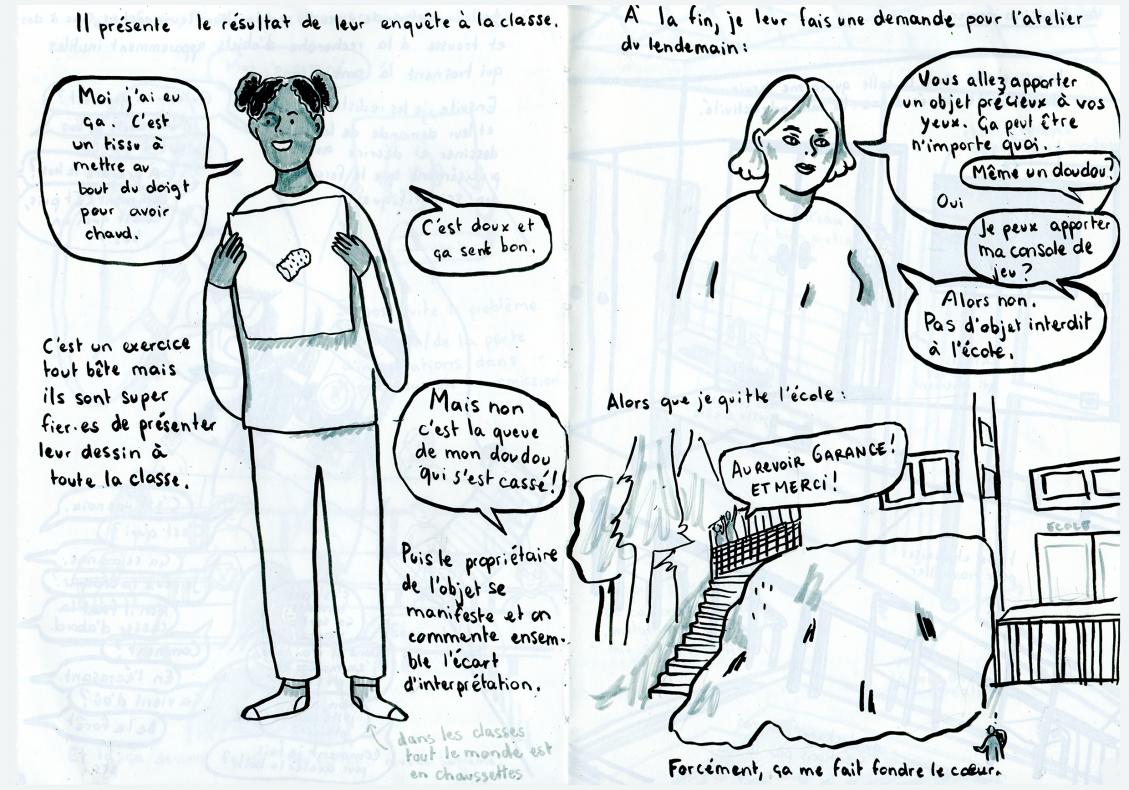 Il présente le résultat de leur enquête à la classe.
Moi j'ai eu
ça. C'est
un tissu à
mettre au
bout du doigt
pour avoir
chaud.
C'est doux et
ça sent bon.
C'est un exercice
tout bête mais
ils sont super
fier·es de présenter
leur dessin à
toute la classe.
Mais non
c'est la queue
de mon doudou
qui s'est cassé!
Puis le propriétaire
de l'objet se
manifeste et on
commente ensem-
ble l'écart
d'interprétation.
dans les classes
tout le monde est
en chaussettes
A la fin, je leur fais une demande pour l'atelier
du lendemain:
Vous allez apporter
un objet précieux à vos
yeux. Ça peut être
n'importe quoi.
Même un doudou?
Oui
Je peux apporter
ma console de
jeu?
Alors non.
Pas d'objet interdit
à l'école.
Alors que je quitte l'école:
AU REVOIR GARANCE!
ET MERCI!
ECOLE
Forcément, ça me fait fondre le cœur.